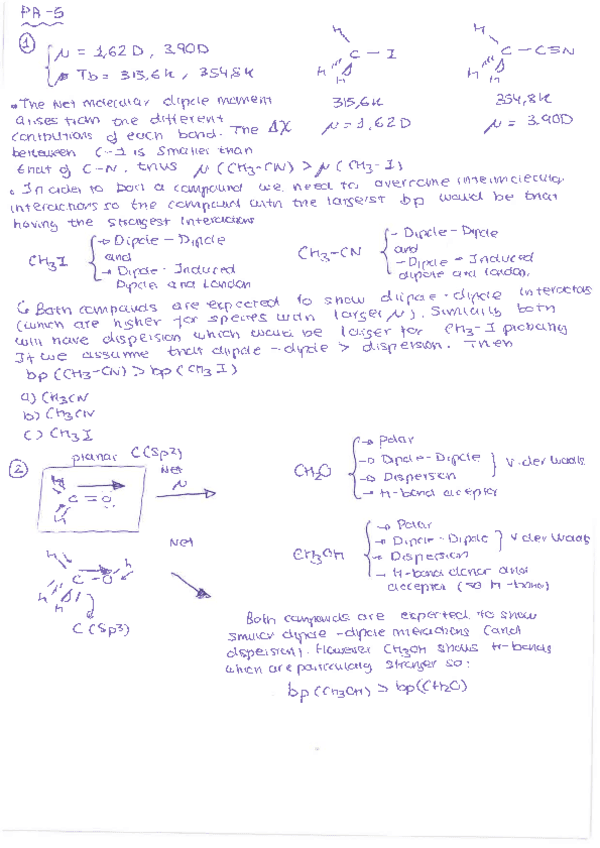 PA-5
① { μ = 1,62D, 3.90D
Tb = 315,6K, 354,8K
H C - I H H
H C - C≡N H H
315,6K 354,8K
μ = 1,62D μ = 3.90D
• The Net molecular dipole moment
arises from the different
contributions of each bond. The Δχ
between C-I is smaller than
that of C-N. thus μ(CH3-CN) > μ(CH3-I)
• In order to boil a compound we need to overcome intermolecular
interactions so the compound with the largerst bp would be that
having the strongest interactions
CH3I { → Dipole-Dipole
and
→ Dipole-Induced
Dipole and London
CH3-CN { - Dipole-Dipole
and
- Dipole-Induced
dipole and London.
↳ Both compounds are expected to show dipole-dipole interactions
(which are higher for species with larger μ). Similarly both
will have dispersion which would be larger for CH3-I probably
If we assume that dipole-dipole > dispersion. Then
bp(CH3-CN) > bp(CH3I)
a) CH3CN
b) CH3CN
c) CH3I
② planar C(Sp2)
H H C = O
Net μ
CH2O { → Polar
→ Dipole-Dipole
→ Dispersion } V.der Waals
→ H-bond acceptor
H H H C - O H
Net
C(Sp3)
CH3OH { → Polar
→ Dipole-Dipole
→ Dispersion } V der Waals
→ H-bond donor and
acceptor (so H-bond)
Both compounds are expected to show
similar dipole-dipole interactions (and
dispersion). However CH3OH shows H-bonds
which are particularly stronger so:
bp(CH3OH) > bp(CH2O)